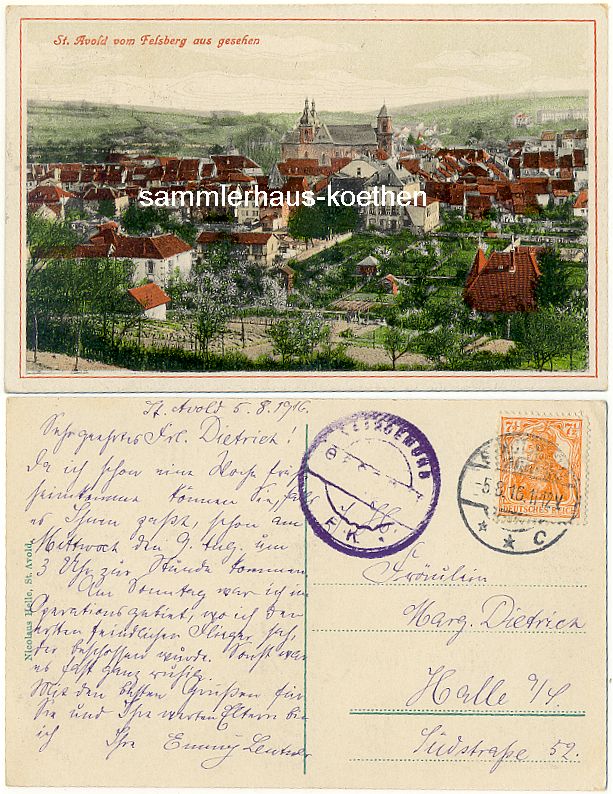 St. Avold vom Felsberg aus gesehen
sammlerhaus-koethen
St. Avold 5.8.1916.
Sehr geehrtes Frl. Dietrich!
Da ich schon eine Woche
heimkomme können Sie, falls
es Ihnen paßt, schon am
Mittwoch den 9. Aug. um
3 Uhr zur Stunde kommen
Am Sonntag war ich im
Operationsgebiet, wo ich den
ersten feindlichen Flieger sah,
der beschossen wurde. Sonst war
es fast ganz ruhig.
Mit den besten Grüßen für
Sie und Ihre werten Eltern bin
ich Ihre Emmy
Nicolaus Helle, St. Avold.
SAARGEMÜND
F.K.
7½ 7½
DEUTSCHES REICH
-5.8.16
* * C
Fräulein
Marg. Dietrich
Halle a/S.
Südstraße 52.